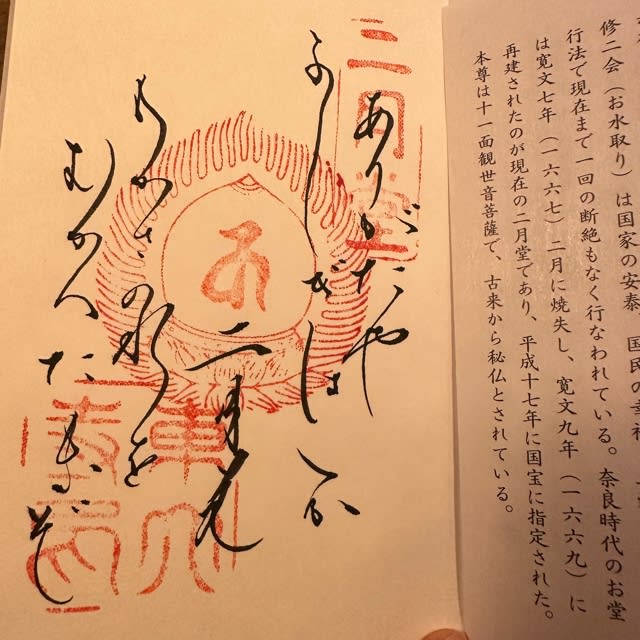 修二会（お水取り）は国家の安泰、国民の幸福
行法で現在まで一回の断絶もなく行なわれている。奈良時代のお堂
は寛文七年（一六六七）二月に焼失し、寛文九年（一六六九）に
再建されたのが現在の二月堂であり、平成十七年に国宝に指定された。
本尊は十一面観世音菩薩で、古来から秘仏とされている。
二月堂
ありがたや
ふしぎは一か
二月堂
わかさの水を
むかへたまふぞ